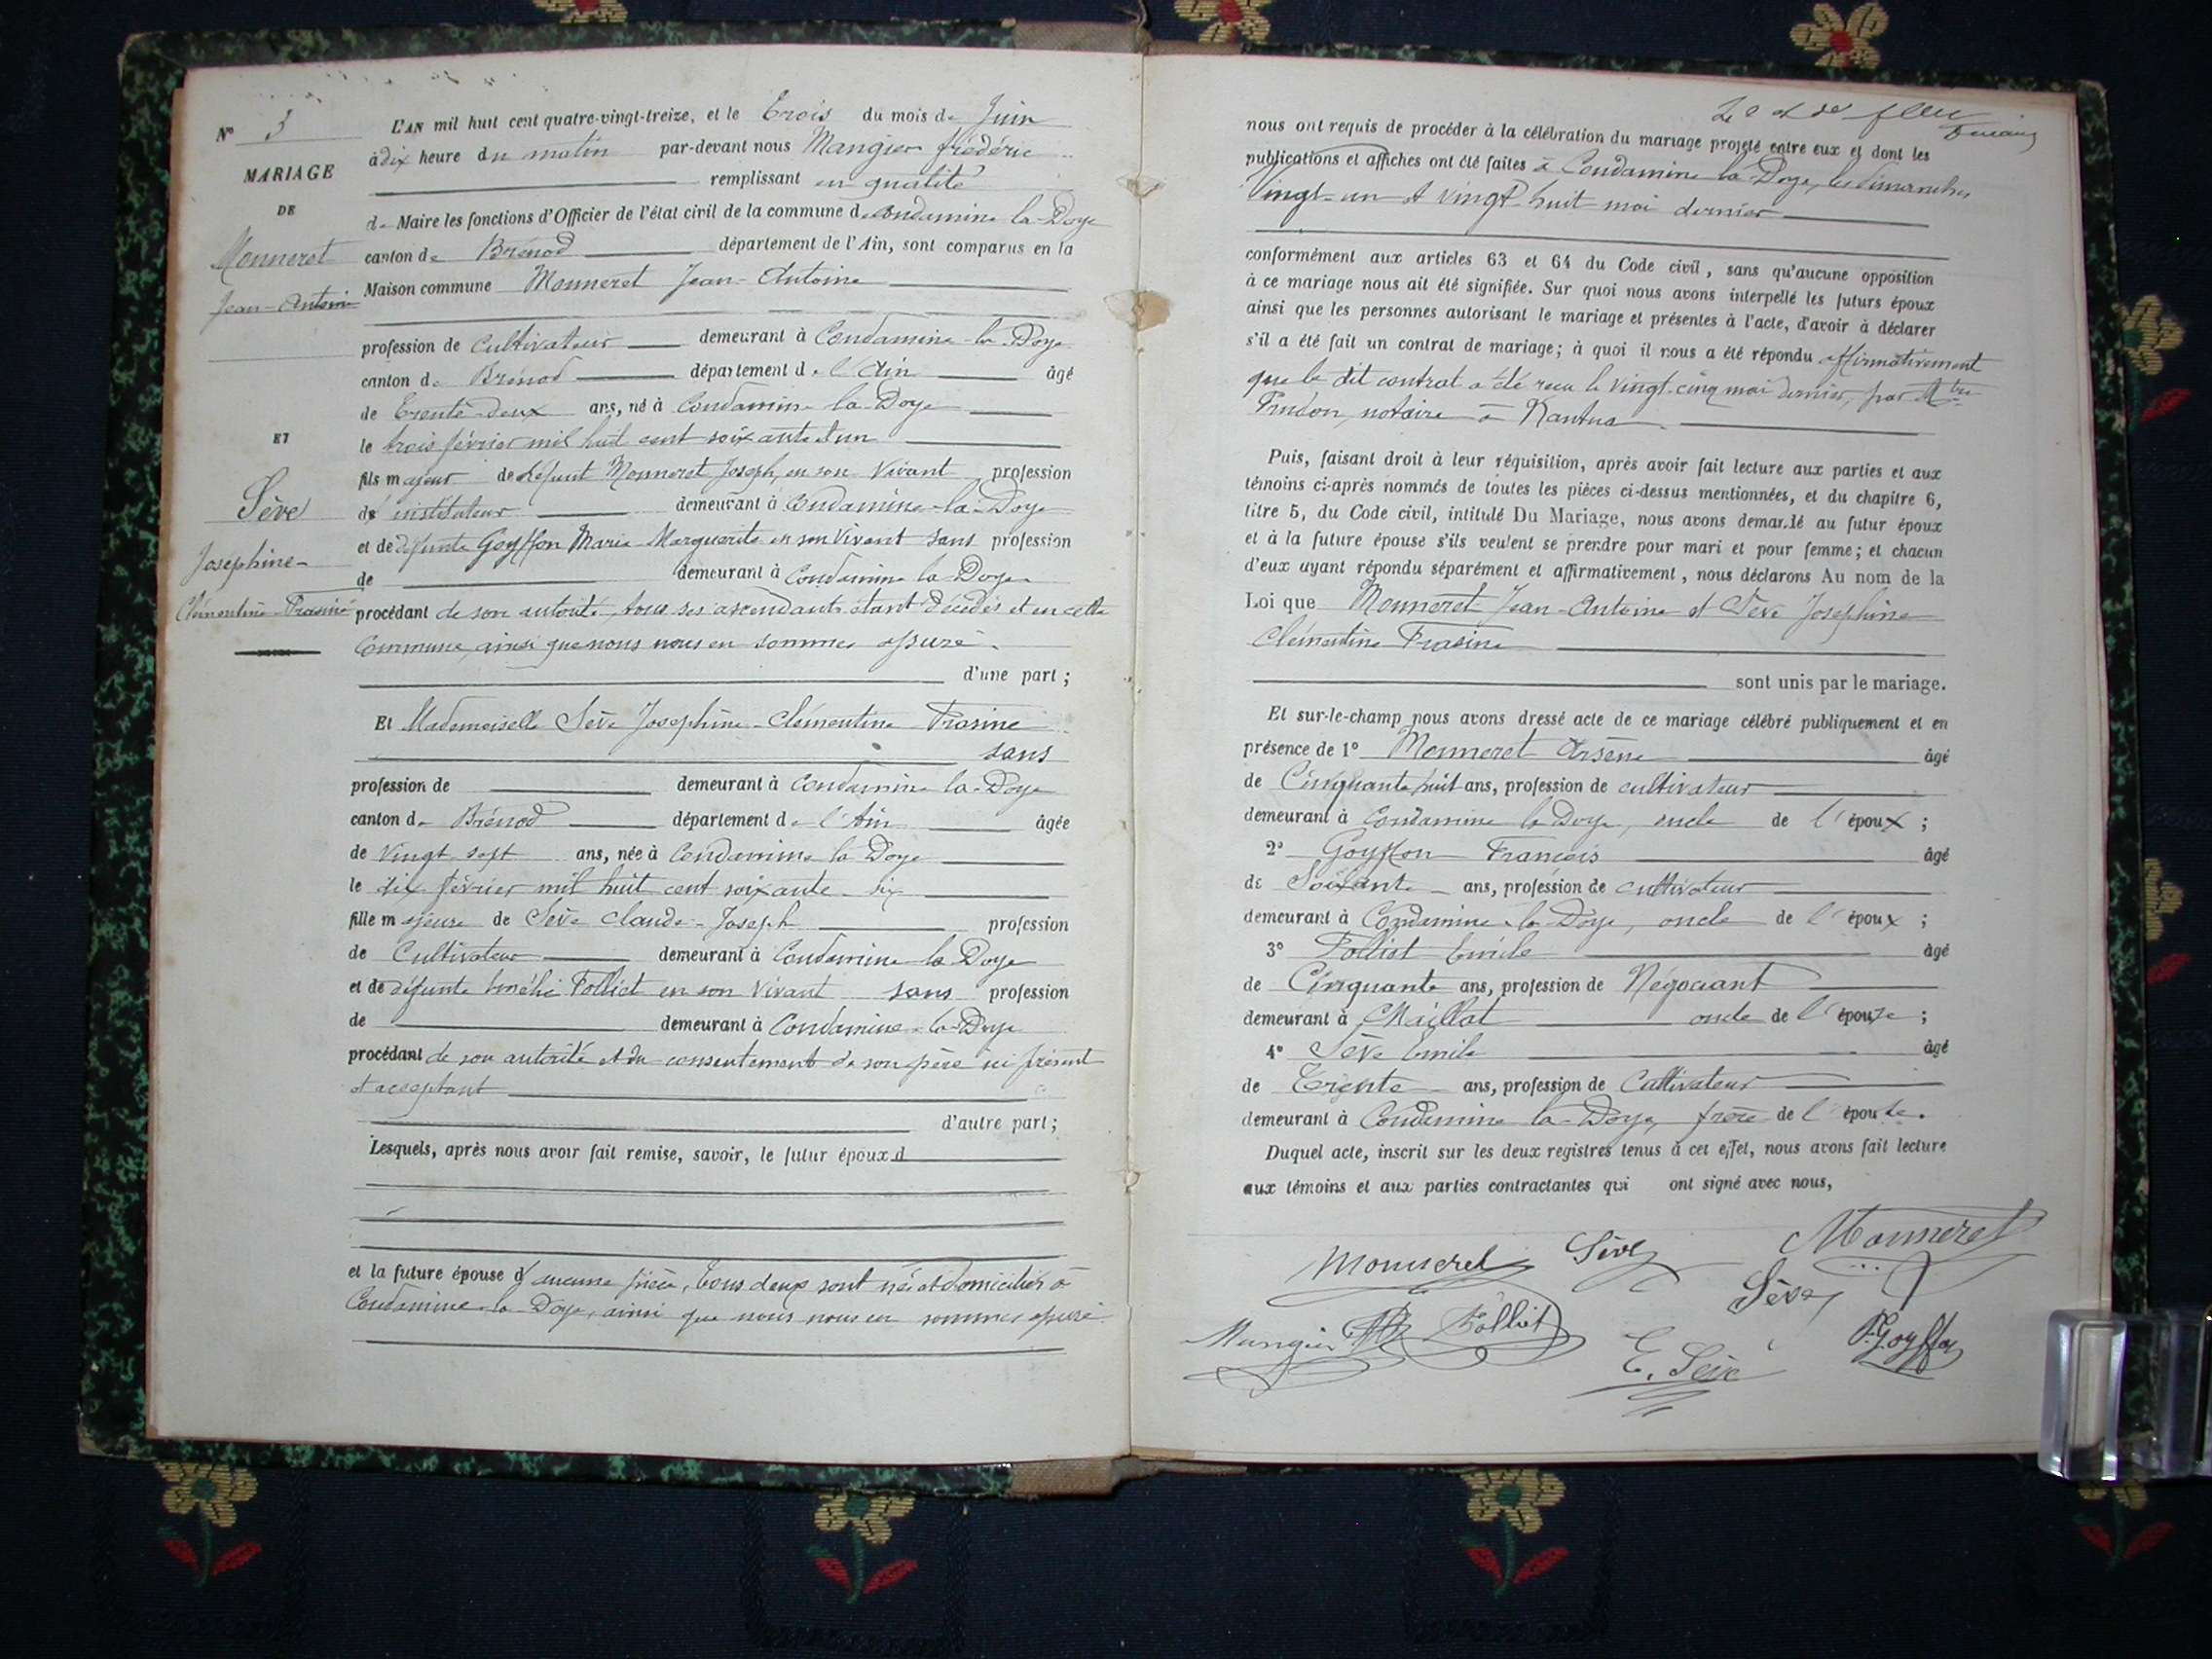 N° 3
MARIAGE
DE
Monneret
Jean-Antoine
ET
Sève
Joséphine-
Clémentine-Frasine
L'AN mil huit cent quatre-vingt-treize, et le trois du mois de Juin
à dix heure du matin par-devant nous Mangier frédéric
remplissant en qualité
de Maire les fonctions d'Officier de l'état civil de la commune de Condamine la-Doye
canton de Brénod département de l'Ain, sont comparus en la
Maison commune Monneret Jean-Antoine
profession de Cultivateur demeurant à Condamine-la-Doye
canton de Brénod département de l'Ain âgé
de trente-deux ans, né à Condamine-la-Doye
le trois février mil huit cent soixante et un
fils majeur de défunt Monneret Joseph, en son vivant profession
de instituteur demeurant à Condamine-la-Doye
et de défunte Goyffon Marie Marguerite en son vivant sans profession
de demeurant à Condamine la-Doye
procédant de son autorité, tous ses ascendants étant décédés et en cette
Commune, ainsi que nous nous en sommes assuré.
d'une part ;
Et Mademoiselle Sève Joséphine-Clémentine Frasine
sans
profession de demeurant à Condamine la-Doye
canton de Brénod département de l'Ain âgée
de vingt-sept ans, née à Condamine la Doye
le dix février mil huit cent soixante-six
fille majeure de Sève Claude-Joseph profession
de Cultivateur demeurant à Condamine la Doye
et de défunte Folliet en son vivant sans profession
de demeurant à Condamine-la-Doye
procédant de son autorité et du consentement de son père ici présent
et acceptant
d'autre part ;
Lesquels, après nous avoir fait remise, savoir, le futur époux d
et la future épouse d'aucune pièce, tous deux sont nés et domiciliés à
Condamine-la-Doye, ainsi que nous nous en sommes assuré.
nous ont requis de procéder à la célébration du mariage projeté entre eux et dont les
publications et affiches ont été faites à Condamine la-Doye, les dimanches
Vingt-un et vingt-huit mai dernier
conformément aux articles 63 et 64 du Code civil, sans qu'aucune opposition
à ce mariage nous ait été signifiée. Sur quoi nous avons interpellé les futurs époux
ainsi que les personnes autorisant le mariage et présentes à l'acte, d'avoir à déclarer
s'il a été fait un contrat de mariage; à quoi il nous a été répondu affirmativement
que le dit contrat a été reçu le vingt-cinq mai dernier, par Mtre
Prudon, notaire à Nantua.
Puis, faisant droit à leur réquisition, après avoir fait lecture aux parties et aux
témoins ci-après nommés de toutes les pièces ci-dessus mentionnées, et du chapitre 6,
titre 5, du Code civil, intitulé Du Mariage, nous avons demandé au futur époux
et à la future épouse s'ils veulent se prendre pour mari et pour femme; et chacun
d'eux ayant répondu séparément et affirmativement, nous déclarons Au nom de la
Loi que Monneret Jean-Antoine et Sève Joséphine
Clémentine Frasine
sont unis par le mariage.
Et sur-le-champ nous avons dressé acte de ce mariage célébré publiquement et en
présence de 1° Monneret Arsène âgé
de Cinquante huit ans, profession de cultivateur
demeurant à Condamine la Doye, oncle de l'époux ;
2° Goyffon François âgé
de Soixante ans, profession de cultivateur
demeurant à Condamine-la-Doye, oncle de l'époux ;
3° Folliet Emile âgé
de Cinquante ans, profession de Négociant
demeurant à Maillat oncle de l'épouse ;
4° Sève Emile âgé
de Trente ans, profession de Cultivateur
demeurant à Condamine la-Doye, frère de l'épouse.
Duquel acte, inscrit sur les deux registres tenus à cet effet, nous avons fait lecture
aux témoins et aux parties contractantes qui ont signé avec nous,
Monneret Sève Monneret
Sève
Mangier Folliet E. Sève F. Goyffon